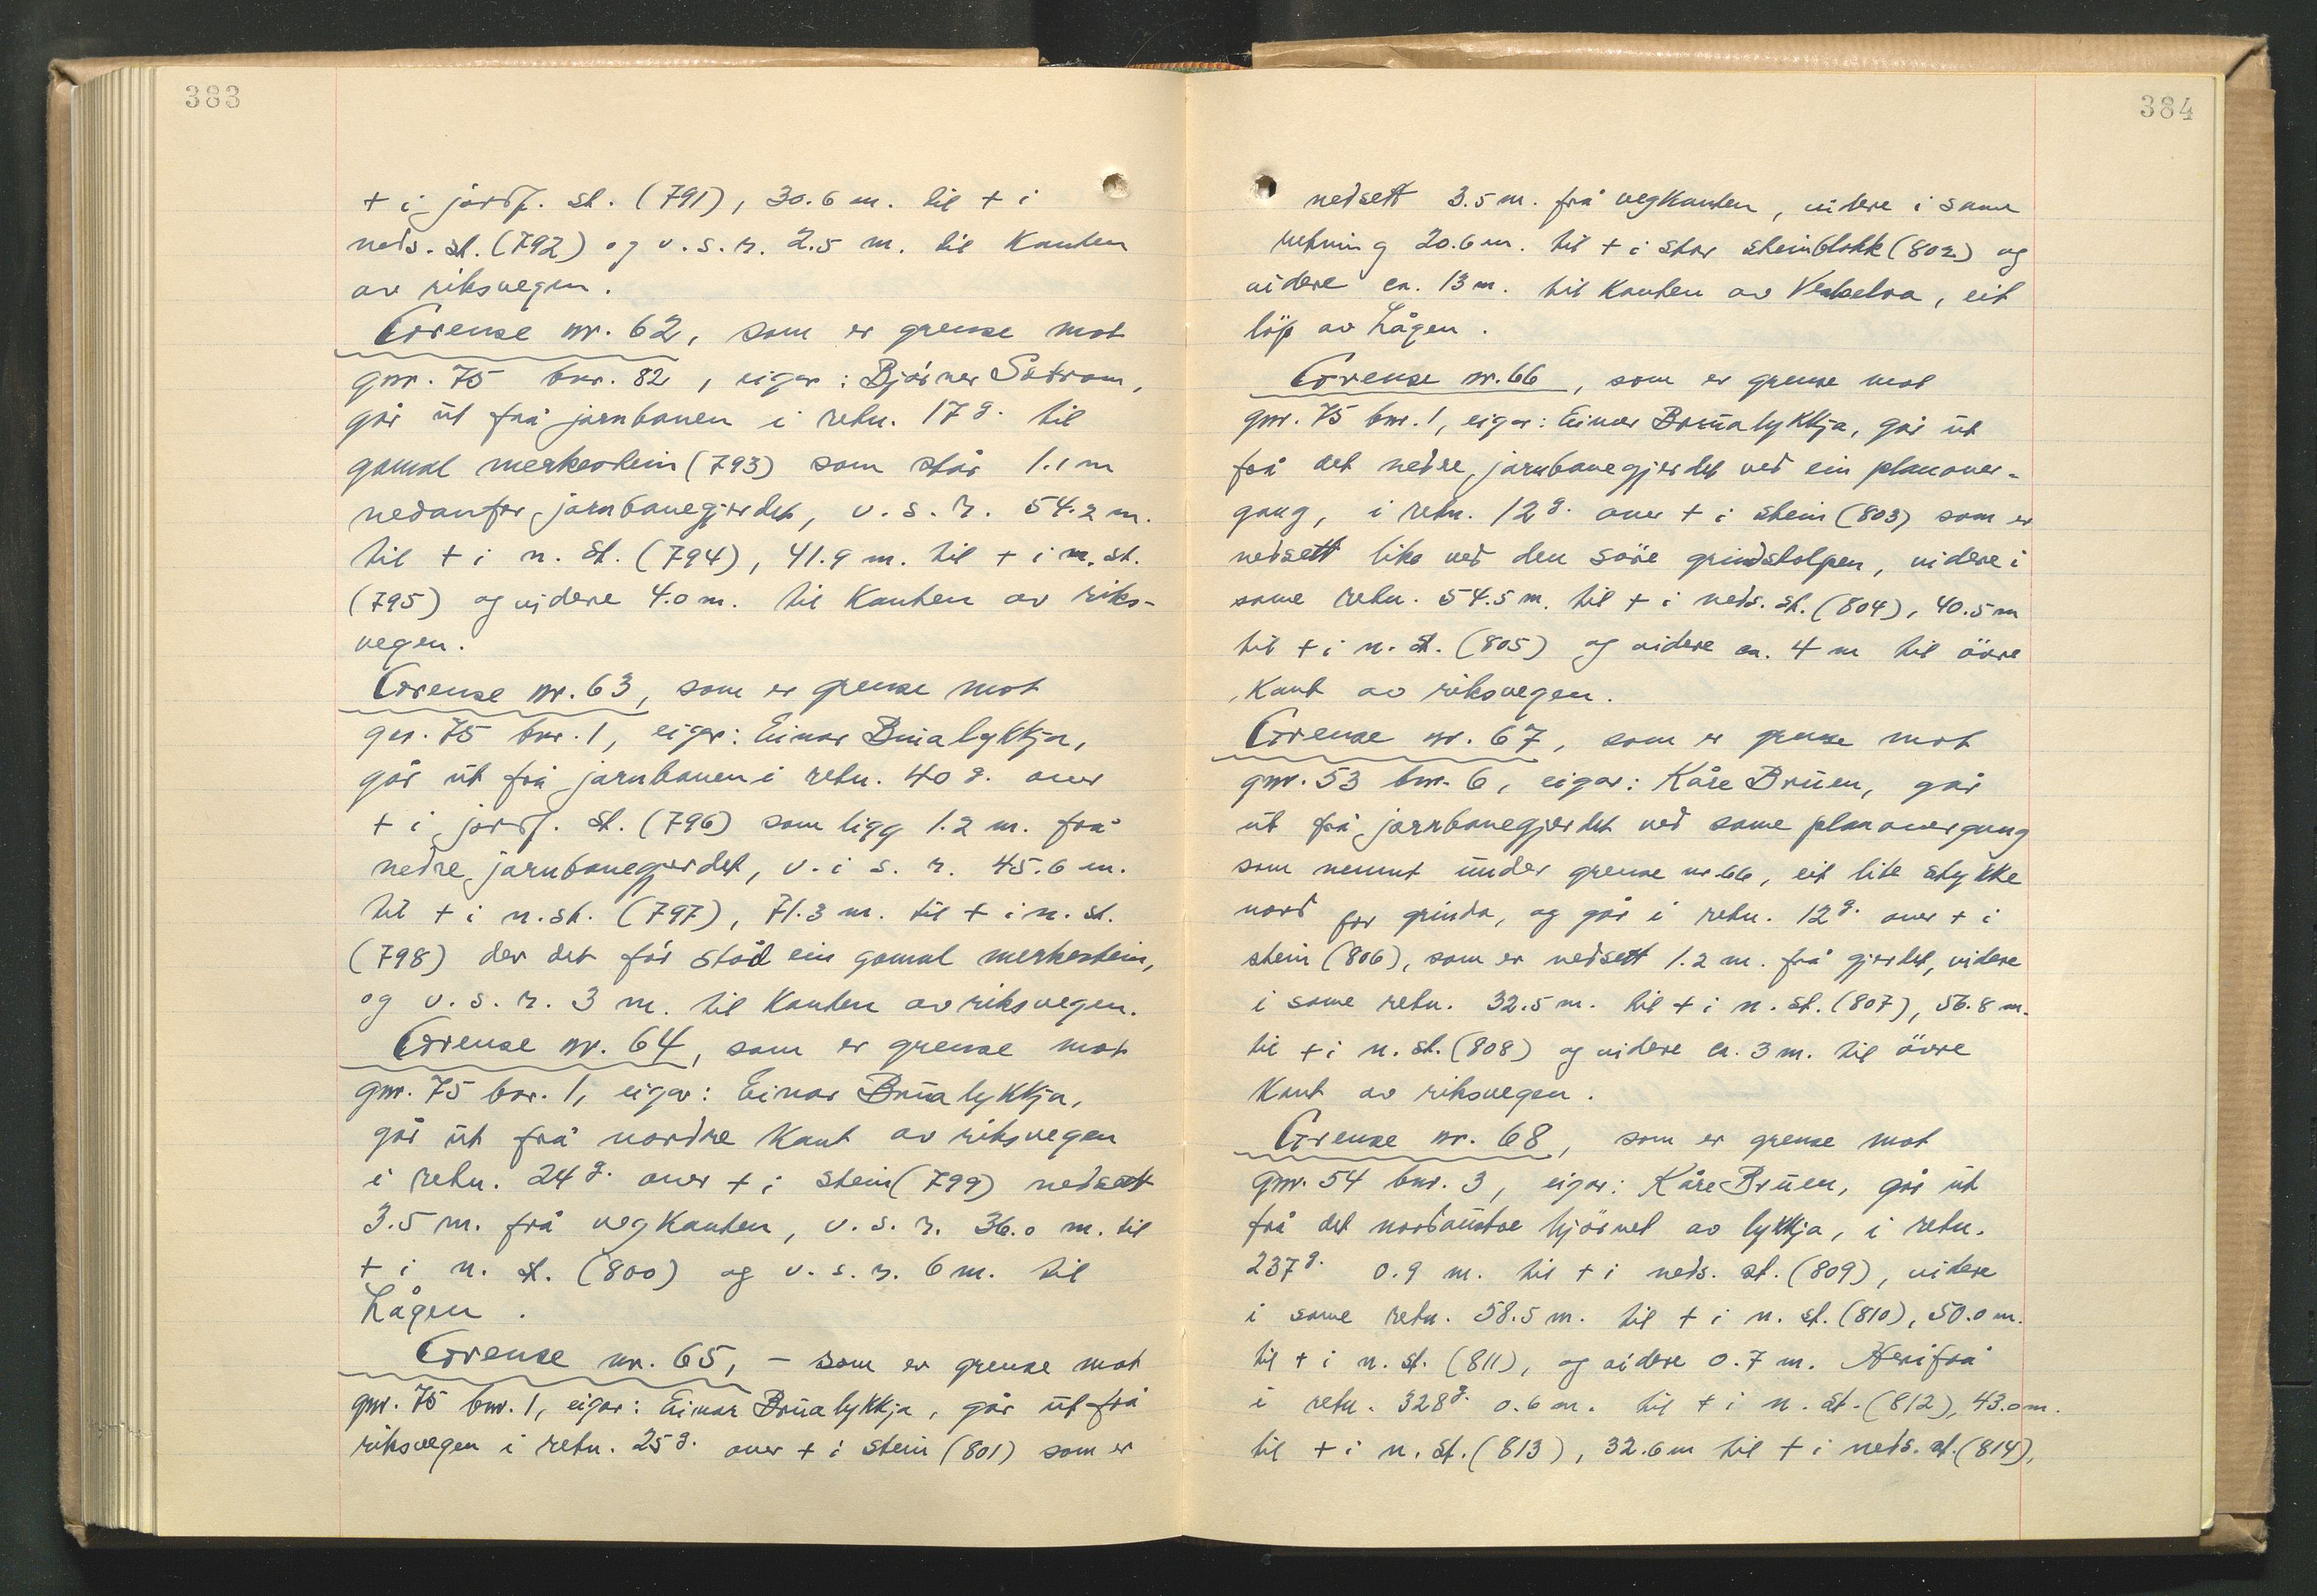 383
+ i jordf. st. (791), 30.6 m. til + i
neds. st. (792) og v. s. r. 2.5 m. til kanten
av riksvegen.
Grense nr. 62, som er grense mot
gnr. 75 bnr. 82, eigar: Bjørner
går ut frå jarnbanen i retn. 17 g. til
gamal merkestein (793) som står 1.1 m
nedanfor jarnbanegjerdet, v. s. r. 54.2 m.
til + i n. st. (794), 41.9 m. til + i n. st.
(795) og videre 4.0 m. til kanten av riks-
vegen.
Grense nr. 63, som er grense mot
gnr. 75 bnr. 1, eigar: Einar Brualykkja,
går ut frå jarnbanen i retn. 40 g. over
+ i jordf. st. (796) som ligg 1.2 m. frå
nedre jarnbanegjerdet, v. i s. r. 45.6 m.
til + i n. st. (797), 71.3 m. til + i n. st.
(798) der det før stod ein gamal merkestein,
og v. s. r. 3 m. til kanten av riksvegen.
Grense nr. 64, som er grense mot
gnr. 75 bnr. 1, eigar: Einar Brualykkja,
går ut frå nordre kant av riksvegen
i retn. 24 g. over + i stein (799) nedsett
3.5 m. frå vegkanten, v. s. r. 36.0 m. til
+ i n. st. (800) og v. s. r. 6 m. til
Lågen.
Grense nr. 65, - som er grense mot
gnr. 75 bnr. 1, eigar: Einar Brualykkja, går ut frå
riksvegen i retn. 25 g. over + i stein (801) som er
384
nedsett 3.5 m. frå vegkanten, videre i same
retning 20.6 m. til + i stor steinblokk (802) og
videre ca. 13 m. til kanten av Vesleelva, eit
löp av Lågen.
Grense nr. 66, som er grense mot
gnr. 75 bnr. 1, eigar: Einar Brualykkja, går ut
frå det nedre jarnbanegjerdet ved ein planover-
gang, i retn. 12 g. over + i stein (803) som er
nedsett like ved den söre grindstolpen, videre i
same retn. 54.5 m. til + i neds. st. (804), 40.5 m
til + i n. st. (805) og videre ca. 4 m til övre
kant av riksvegen.
Grense nr. 67, som er grense mot
gnr. 53 bnr. 6, eigar: Kåre Bruen, går
ut frå jarnbanegjerdet ved same planovergang
som nemnt under grense nr. 66, eit lite stykke
nord for grinda, og går i retn. 12 g. over + i
stein (806), som er nedsett 1.2 m. frå gjerdet, videre
i same retn. 32.5 m. til + i n. st. (807), 56.8 m.
til + i n. st. (808) og videre ca. 3 m. til övre
kant av riksvegen.
Grense nr. 68, som er grense mot
gnr. 54 bnr. 3, eigar: Kåre Bruen, går ut
frå det nordaustre hjörnet av lykkja, i retn.
237 g. 0.9 m. til + i neds. st. (809), videre
i same retn. 58.5 m. til + i n. st. (810), 50.0 m.
til + i n. st. (811), og videre 0.7 m. Herifrå
i retn. 328 g. 0.6 m. til + i n. st. (812), 43.0 m.
til + i n. st. (813), 32.6 m til + i neds. st. (814),